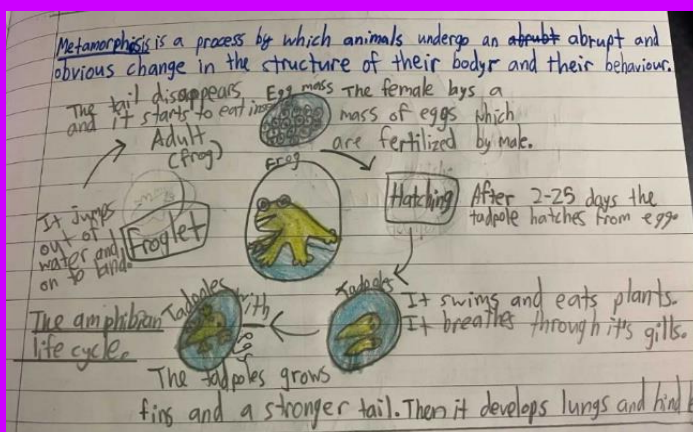 Metamorphosis is a process by which animals undergo an abrubt abrupt and
obvious change in the structure of their bodyr and their behaviour.
The tail disappears
and it starts to eat
Adult
(frog)
Egg mass
The female lays a
mass of eggs which
are fertilized by male.
Frog
Hatching
After 2-25 days the
tadpole hatches from egg.
It jumps
out of
water and
on to land.
Froglet
Tadpoles
It swims and eats plants.
It breathes through it's gills.
Tadpoles with
legs
The amphibian
life cycle.
The tadpoles grows
fins and a stronger tail. Then it develops lungs and hind